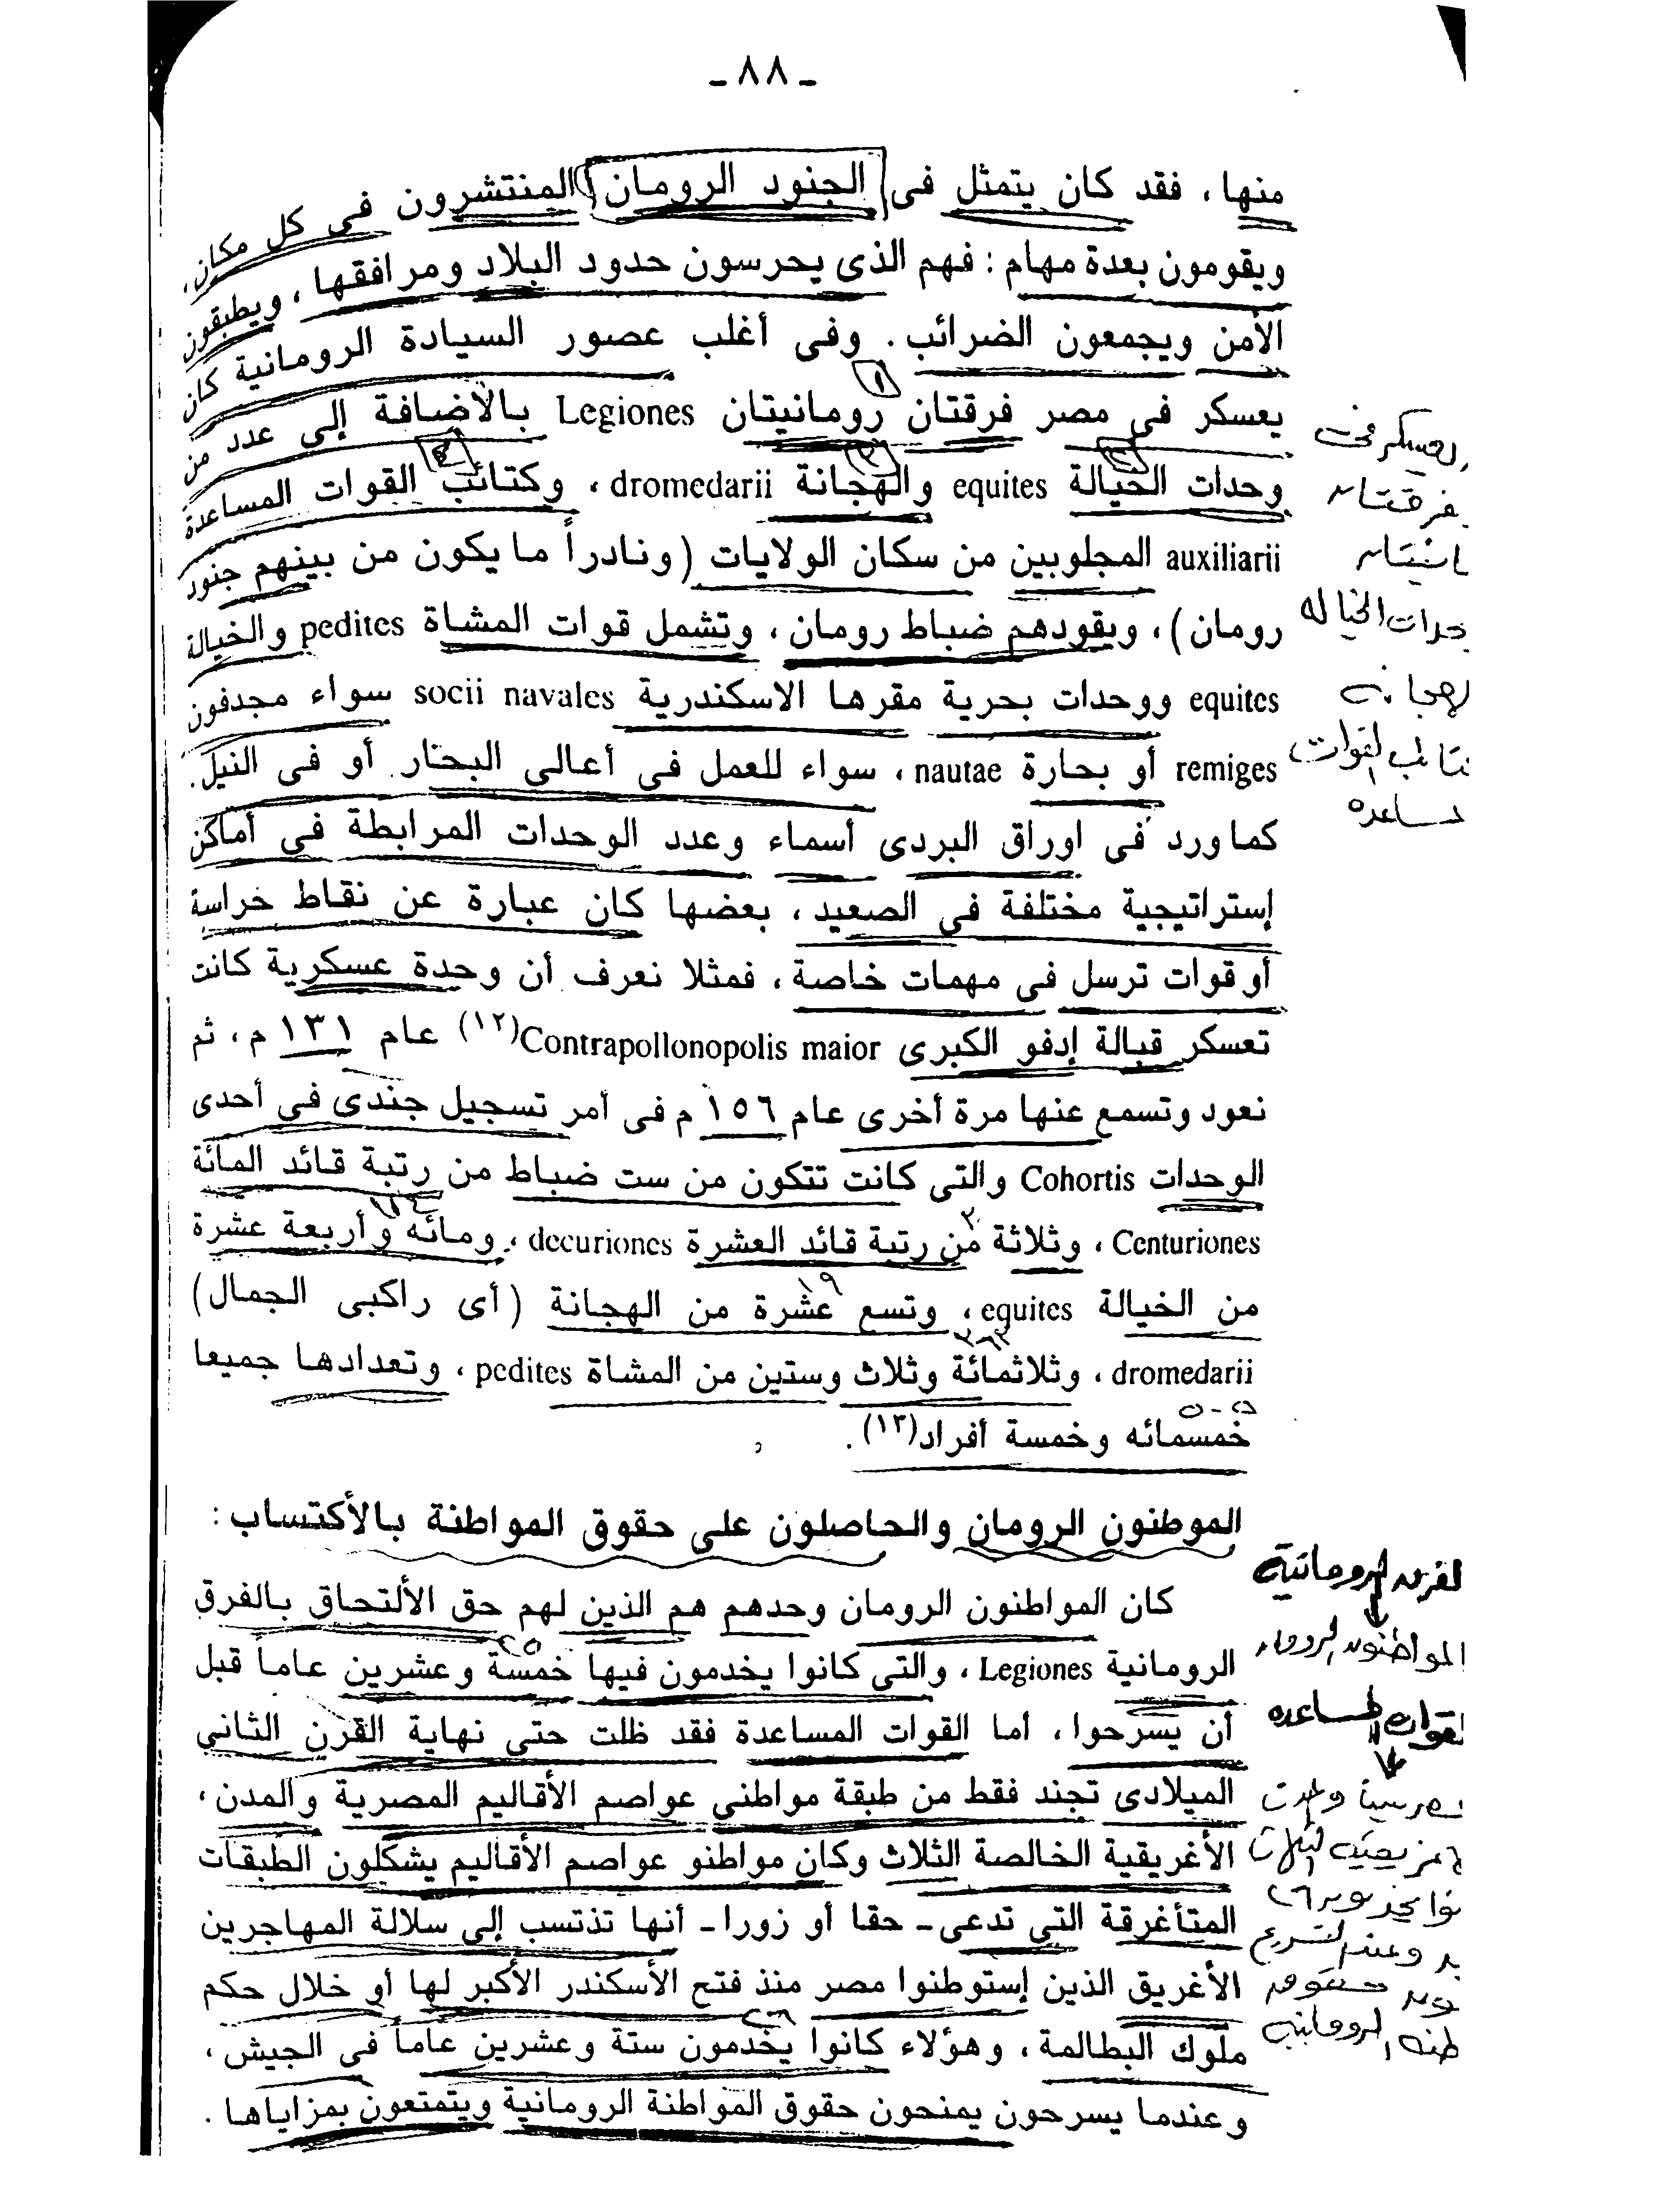 ـ ٨٨ ـ
منها، فقد كان يتمثل فى الجنود الرومان المنتشرون فى كل مكان،
ويقومون بعدة مهام : فهم الذى يحرسون حدود البلاد ومرافقها ، ويطبقون
الأمن ويجمعون الضرائب . وفى أغلب عصور السيادة الرومانية كان
يعسكر فى مصر فرقتان رومانيتان Legiones بالأضافة إلى عدد من
وحدات الخيالة equites والهجانة dromedarii ، وكتائب القوات المساعدة
auxiliarii المجلوبين من سكان الولايات (ونادراً ما يكون من بينهم جنود
رومان) ، ويقودهم ضباط رومان ، وتشمل قوات المشاة pedites والخيالة
equites ووحدات بحرية مقرها الاسكندرية socii navales سواء مجدفون
remiges أو بحارة nautae ، سواء للعمل فى أعالى البحار أو فى النيل.
كما ورد فى اوراق البردى أسماء وعدد الوحدات المرابطة فى أماكن
إستراتيجية مختلفة فى الصعيد ، بعضها كان عبارة عن نقاط حراسة
أو قوات ترسل فى مهمات خاصة ، فمثلا نعرف أن وحدة عسكرية كانت
تعسكر قبالة إدفو الكبرى Contrapollonopolis maior(١٢) عام ١٣١ م ، ثم
نعود وتسمع عنها مرة أخرى عام ١٥٦ م فى أمر تسجيل جندى فى أحدى
الوحدات Cohortis والتى كانت تتكون من ست ضباط من رتبة قائد المائة
Centuriones ، وثلاثة من رتبة قائد العشرة decuriones ، ومائه وأربعة عشرة
من الخيالة equites ، وتسع عشرة من الهجانة (أى راكبى الجمال)
dromedarii ، وثلاثمائة وثلاث وستين من المشاة pedites ، وتعدادها جميعا
خمسمائه وخمسة أفراد(١٣) .
الموطنون الرومان والحاصلون على حقوق المواطنة بالأكتساب :
كان المواطنون الرومان وحدهم هم الذين لهم حق الألتحاق بالفرق
الرومانية Legiones ، والتى كانوا يخدمون فيها خمسة وعشرين عاماً قبل
أن يسرحوا ، أما القوات المساعدة فقد ظلت حتى نهاية القرن الثانى
الميلادى تجند فقط من طبقة مواطنى عواصم الأقاليم المصرية والمدن ،
الأغريقية الخالصة الثلاث وكان مواطنو عواصم الأقاليم يشكلون الطبقات
المتأغرقة التى تدعى ـ حقا أو زورا ـ أنها تذتسب إلى سلالة المهاجرين
الأغريق الذين إستوطنوا مصر منذ فتح الأسكندر الأكبر لها أو خلال حكم
ملوك البطالمة ، وهؤلاء كانوا يخدمون ستة وعشرين عاماً فى الجيش ،
وعندما يسرحون يمنحون حقوق المواطنة الرومانية ويتمتعون بمزاياها .